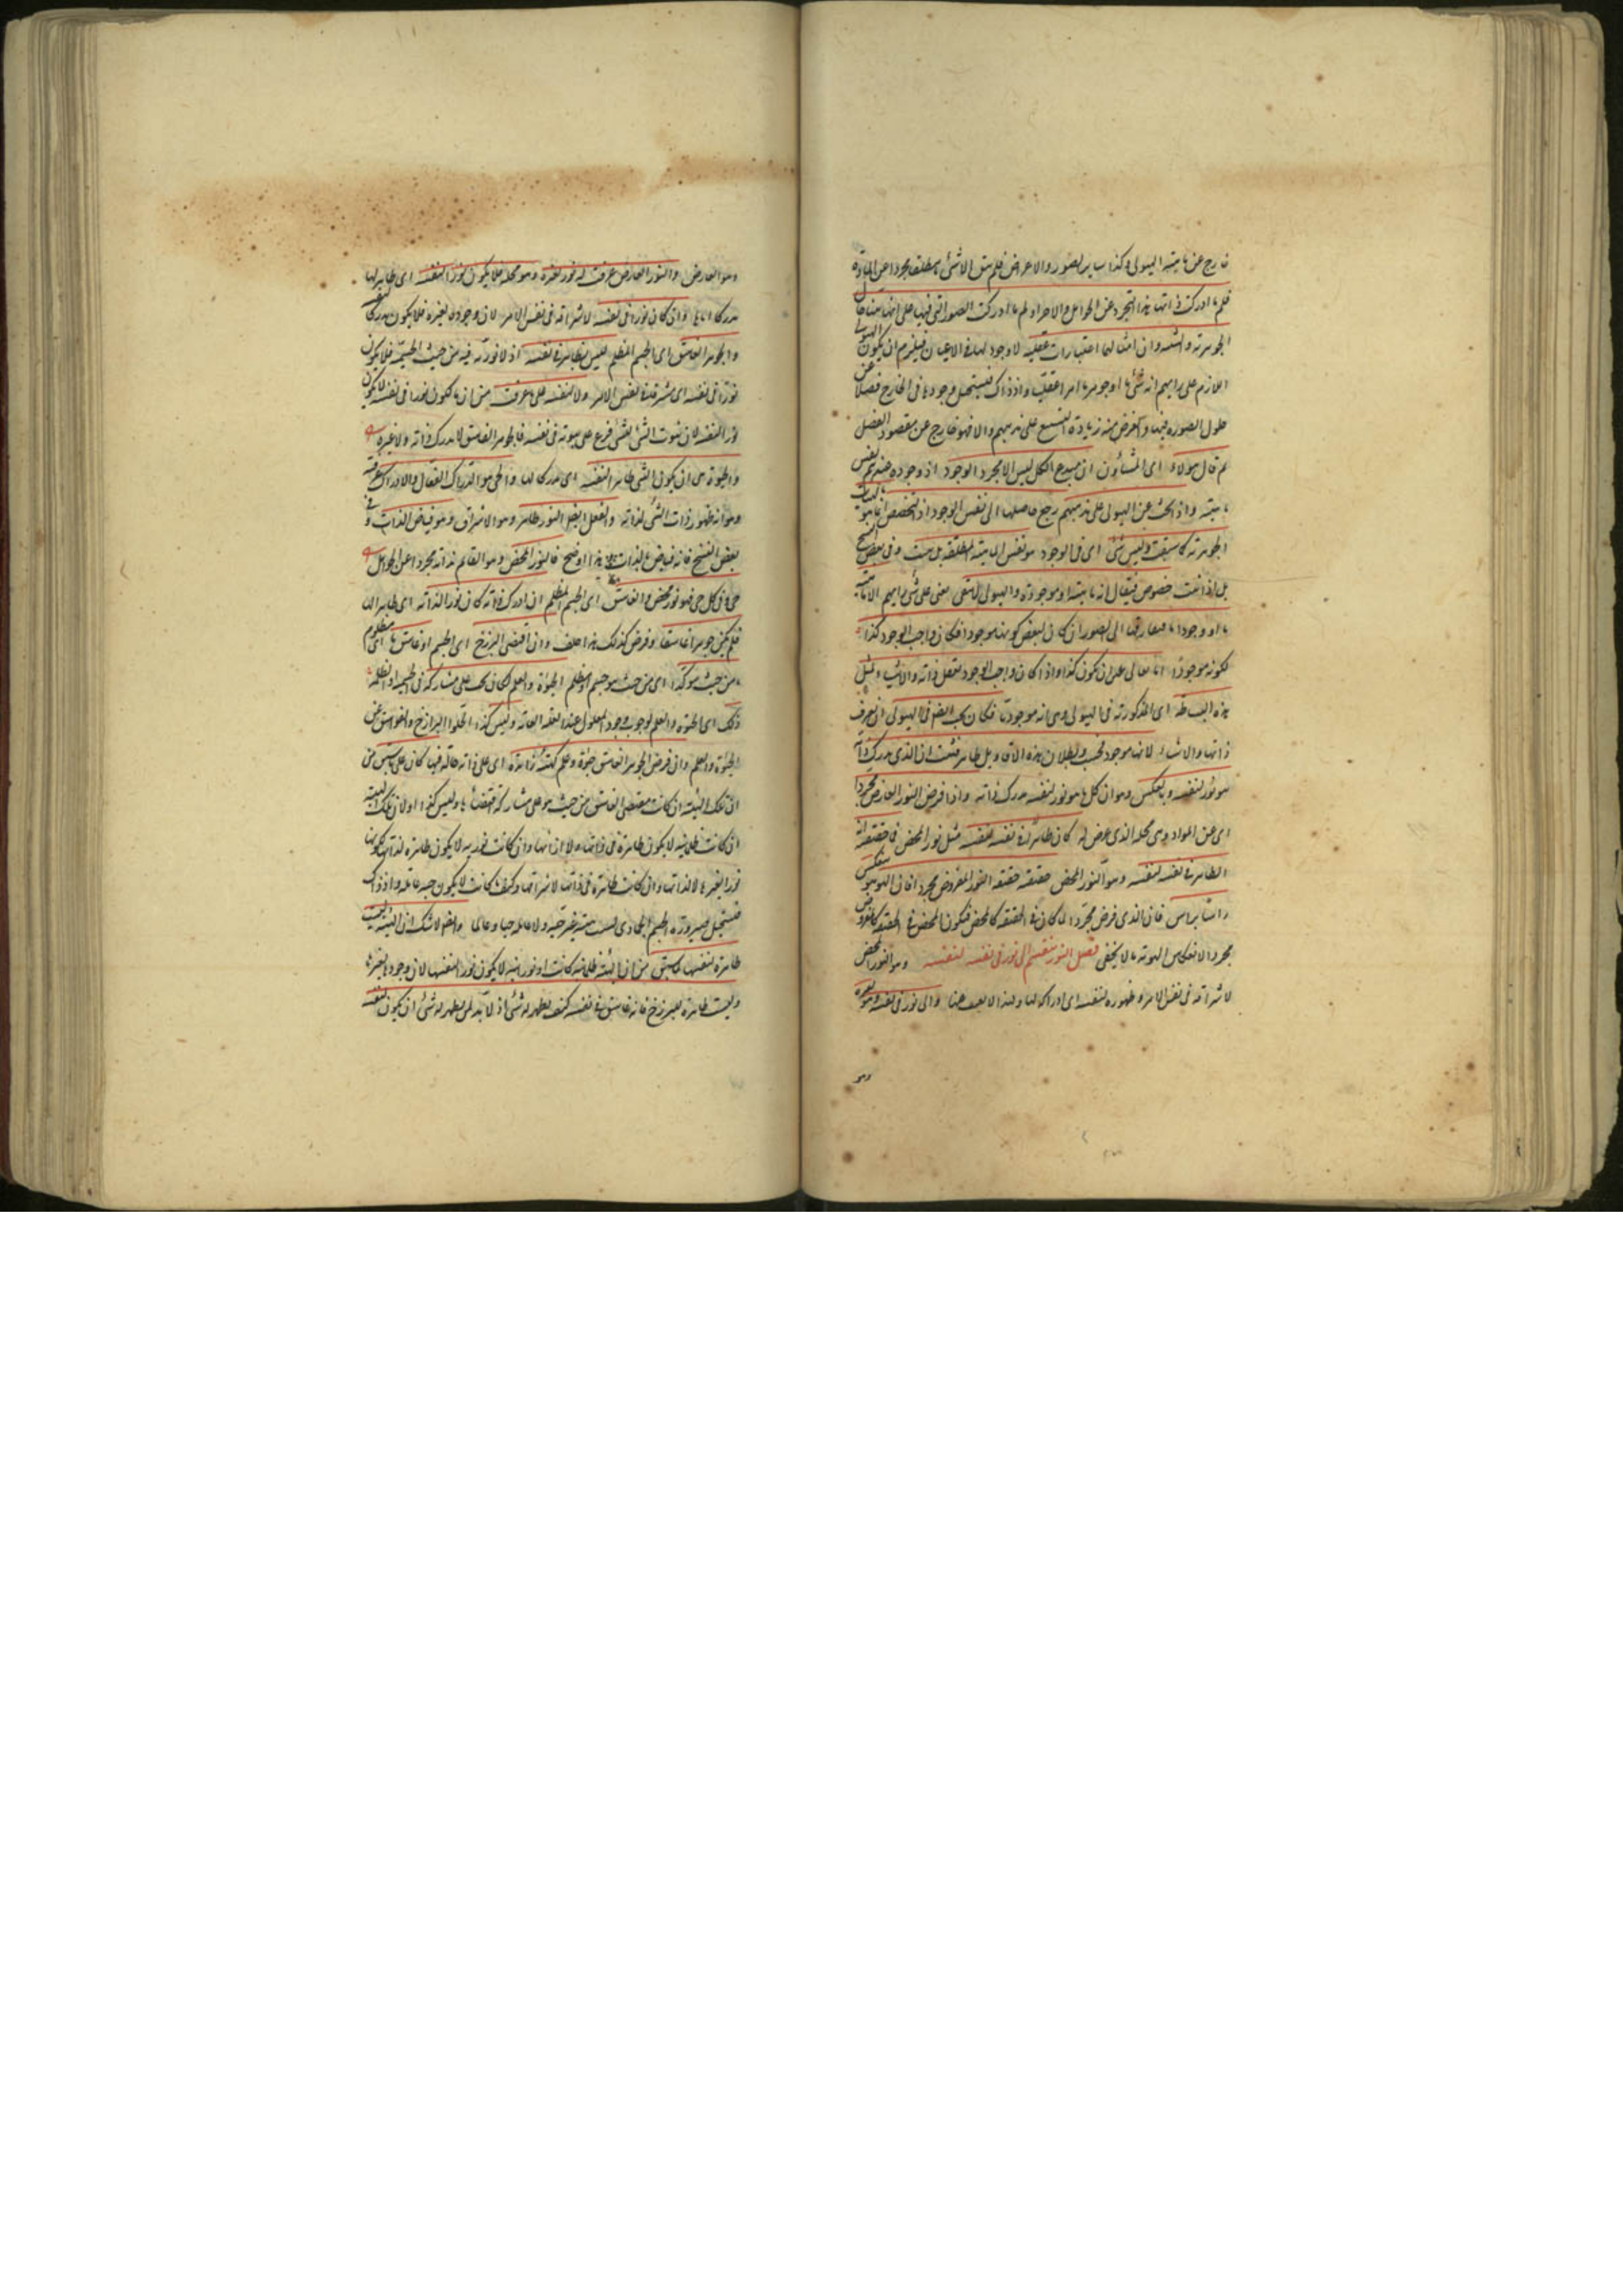 خارج عن ماهية الهيولى وكذا ساير الصور والاعراض فلم يبق الا شئ ما مطلقا مجردا عن المادة
فلم ما ادركت ذاتها بهذا التجرد عن الحوامل والاجزاء ولم ما ادركت الصور التى فيها على انها بينا حال
الجوهرية والشيئية وان امثالهما اعتبارات عقلية لا وجود لها فى الاعيان فيلزم ان يكون الهيولى
اللازم على رايهم انه شئ ما او جوهر ما امرا عقليا واذ ذاك يستحيل وجودها فى الخارج فضلا عن
حلول الصورة فيها والغرض منه زيادة التشنيع على مذهبهم والا فهو خارج عن مقصود الفصل
ثم قال هؤلاء اى المشاؤون ان مبدع الكل ليس الا مجرد الوجود اذ وجوده عندهم نفس
ماهيته واذا بحث عن الهيولى على مذهبهم رجع حاصلها الى نفس الوجود اذ التخصص انما هو بالهيئات
الجوهرية كما سبقت وليس شئ اى فى الوجود هو نفس الماهية المطلقة بل حيث وفى بعض النسخ
بل اذا ثبت خصوص فيقال انه ماهية او موجودة والهيولى لا تبقى يعنى على رايهم الا ماهية
ما او وجودا ما فبفارق الى الصور ان كان لبعض كونها موجودا فكان واجب الوجود كذا
لكونه موجودا تعالى على ان يكون كذا واذا كان واجب الوجود يعقل ذاته والاشياء لمثل
هذه البساطة اى المذكورة فى الهيولى وهى انه موجود ما فكان يجب ايضا فى الهيولى ان يعرف
ذاتها والاشياء لانها موجود فحسب وبطلان هذه الاقاويل ظاهر فثبت ان الذى يدرك ذاته
هو نور لنفسه وبالعكس وهو ان كل ما هو نور لنفسه مدرك ذاته واذا فرض النور العارض مجردا
اى عن المواد وهى محله الذى عرض له كان ظاهرا فى نفسه لنفسه مثل نور المحض فما حقيقته انه
الظاهر فى نفسه لنفسه وهو النور المحض حقيقته حقيقة النور المفروض مجردا فان الهوهو ينعكس
راسا براس فان الذى فرض مجردا لما كان فى الحقيقة كالمحض فيكون المحض فى الحقيقة كالمفروض
مجردا لانعكاس الهوية كما لا يخفى فصل النور ينقسم الى نور فى نفسه لنفسه وهو النور المحض
لاشراقه فى نفس الامر وظهوره لنفسه اى ادراكه لها والى نور فى نفسه وهو لغيره
وهو
وهو العارض والنور العارض عرفت انه نور لغيره وهو محله فلا يكون نورا لنفسه اى ظاهرا لها
مدركا اياها وان كان نورا فى نفسه لاشراقه فى نفس الامر لان وجوده لغيره فلا يكون مدركا لنفسه
والجوهر الغاسق اى الجسم المظلم ليس بظاهر فى نفسه اذ لا نورية فيه من حيث الجسمية فلا يكون
نورا فى نفسه اى مشرقة فى نفس الامر ولا لنفسه على ما عرفت من ان ما لا يكون نورا فى نفسه لا يكون
نورا لنفسه لان ثبوت الشئ للشئ فرع على ثبوته فى نفسه فالجوهر الغاسق لا يدرك ذاته ولا غيره
والحيوة هى ان يكون الشئ ظاهرا لنفسه اى مدركا لها والحى هو الدراك الفعال والادراك عرفته
وهو انه ظهور ذات الشئ لذاته والفعل ايضا للنور ظاهر وهو الاشراق وهو فياض الذات وفى
بعض النسخ فانه فياض بالذات هذا اوضح فالنور المحض وهو القائم بذاته مجردا عن الحوامل
حى وكل حى فهو نور محض والغاسق اى الجسم المظلم ان ادرك ذاته كان نورا لذاته اى ظاهرا لها
فلم يكن جوهرا غاسقا وفرض كذلك هذا خلف وان اقتضى البرزخ اى الجسم او غاسق ما اى مظلم
ما من حيث هو كذا اى من حيث هو جسم او مظلم الحيوة والعلم لكان يجب على مشاركه فى الجسمية او الظلمة
ذلك اى الحيوة والعلم لوجوب وجود المعلول عند العلة التامة وليس كذا لخلو البرازخ والغواسق عن
الحيوة والعلم وان فرض للجوهر الغاسق حيوة وعلم لهيئة زائدة اى على ذاته حالة فيها كان على ما سبق من
ان تلك الهيئة ان كانت مقتضى الغاسق من حيث هو على مشاركه اقتضاها وليس كذا او لان تلك الهيئة
ان كانت ظلمانية لا يكون ظاهرة فى ذاتها ولا لذاتها وان كانت نورية لا يكون ظاهرة لذاتها لكونها
نورا لغيرها لا لذاتها وان كانت ظاهرة فى ذاتها لاشراقها وكيف ما كانت لا يكون حية عالمة واذ ذاك
فيستحيل صيرورة الجسم الجمادى لهيئة غير حية ولا عالمة حيا وعالما وايضا لا شك ان الهيئة ليست
ظاهرة لنفسها لما سبق من ان الهيئة ظلمانية كانت او نورانية لا يكون نورا لنفسها لان وجودها لغيرها
وليست ظاهرة للبرزخ فانه غاسق فى نفسه كيف يظهر له شئ اذ لا بد لمن يظهر له شئ ان يكون لنفسه